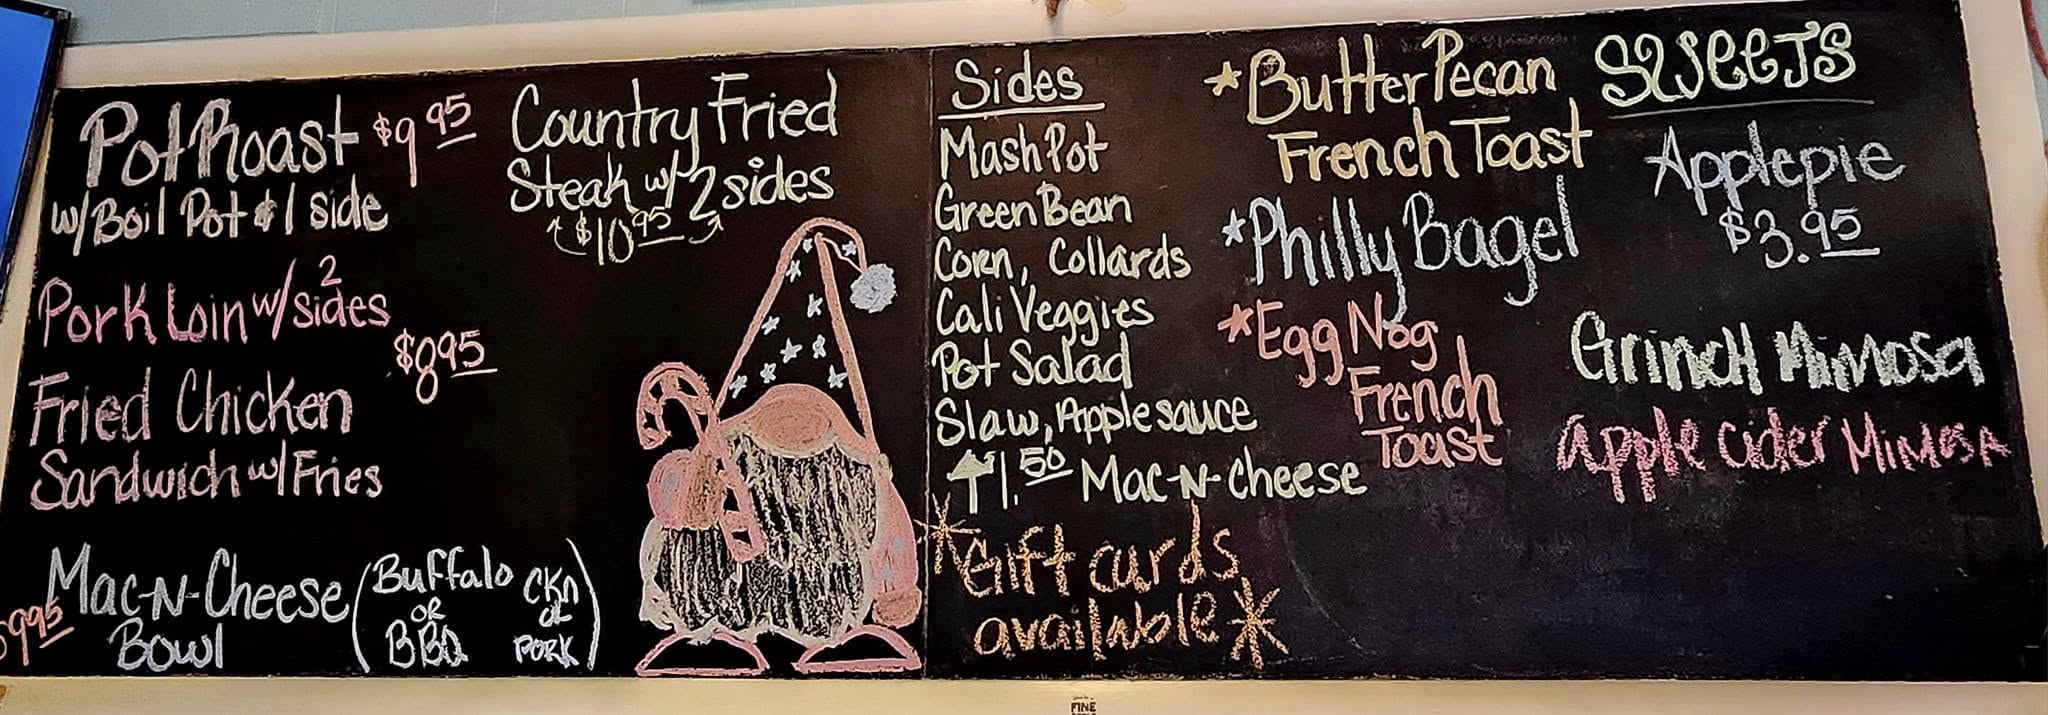 Pot Roast $9.95
w/ Boil Pot & 1 side
Pork Loin w/ 2 sides
$8.95
Fried Chicken
Sandwich w/ Fries
Mac-N-Cheese
$9.95
Bowl
(Buffalo
OR
BBQ
CKn
or
PORK)
Country Fried
Steak w/ 2 sides
$10.95
Sides
Mash Pot
Green Bean
Corn, Collards
Cali Veggies
Pot Salad
Slaw, Apple sauce
↑1.50 Mac-N-Cheese
*Gift cards
available*
*Butter Pecan
French Toast
*Philly Bagel
*Egg Nog
French
Toast
Sweets
Apple pie
$3.95
Grinch Mimosa
Apple Cider Mimosa
FINE